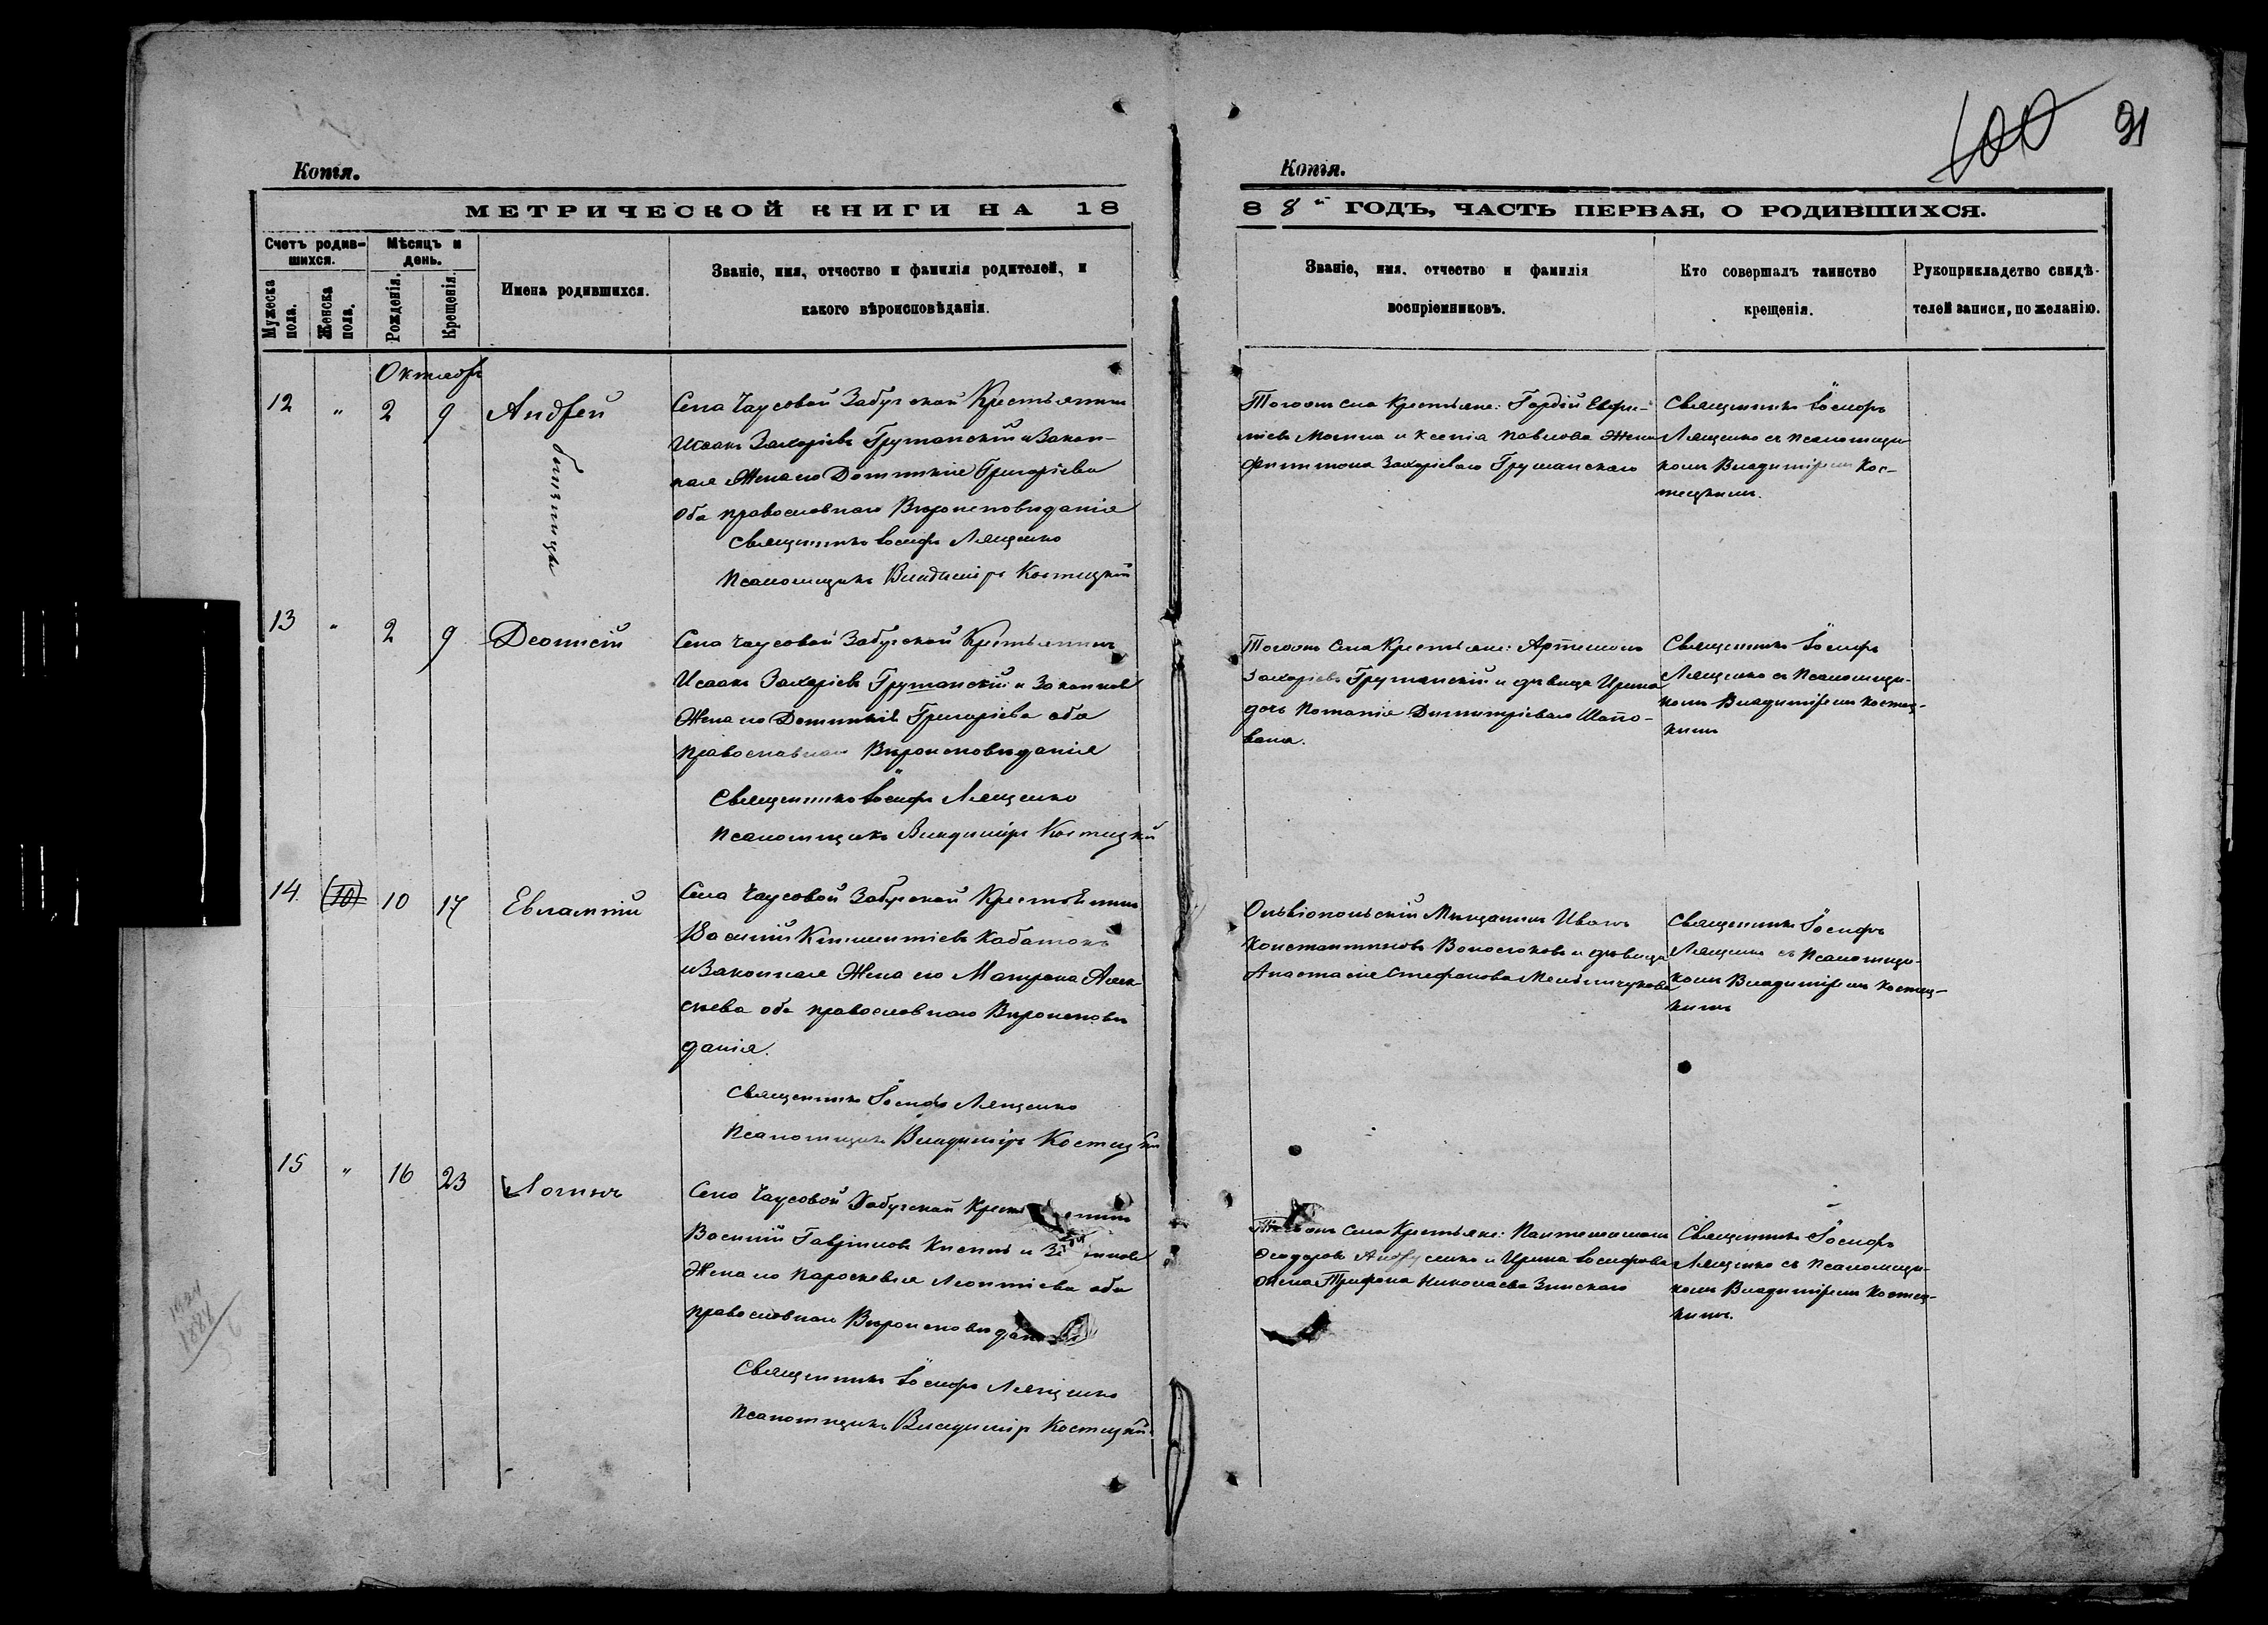 100 91
Копія.
МЕТРИЧЕСКОЙ КНИГИ НА 18
Счетъ родив-
шихся.
Мѣсяцъ и
день.
Мужеска
пола.
Женска
пола.
Рожденія.
Крещенія.
Имена родившихся.
Званіе, имя, отчество и фамилія родителей, и
какого вѣроисповѣданія.
Октябрь
12 " 2 9 Андрей
близнецы
Села Чаусовой Забугской Крестьянинъ
Исаакъ Захаріевъ Грушанскій и Закон-
ная Жена его Домникія Григоріева
Оба православнаго Вѣроисповѣданія
Священникъ Іосифъ Лященко
Псаломщикъ Владиміръ Костецкій
13 " 2 9 Деонисій
Села Чаусовой Забугской Крестьянинъ
Исаакъ Захаріевъ Грушанскій и Законная
Жена его Домникія Григоріева оба
православнаго Вѣроисповѣданія
Священникъ Іосифъ Лященко
Псаломщикъ Владиміръ Костецкій
14 (10) 10 17 Евлампій
Села Чаусовой Забугской Крестьянинъ
Василій Климентіевъ Кабатокъ
и Законная Жена его Матрона Алек-
сѣева оба православнаго Вѣроисповѣ
данія.
Священникъ Іосифъ Лященко
Псаломщикъ Владиміръ Костецкій
15 " 16 23 Логинъ
Село Чаусовой Забугской Крестьянинъ
Василій Гавріиловъ и Законная
Жена его Параскевія Леонтіева оба
православнаго Вѣроисповѣданія
Священникъ Іосифъ Лященко
Псаломщикъ Владиміръ Костецкій
Копія.
8 8й ГОДЪ, ЧАСТЬ ПЕРВАЯ, О РОДИВШИХСЯ.
Званіе, имя, отчество и фамилія
воспріемниковъ.
Кто совершалъ таинство
крещенія.
Рукоприкладство свидѣ-
телей записи, по желанію.
Тогоже села Крестьяне: Гордій Евфи-
міевъ и Ксенія Павлова Жена
Филимона Захаріеваго Грушанскаго
Священникъ Іосифъ
Лященко съ псаломщи-
комъ Владиміромъ Кос-
тецкимъ.
Тогоже села Крестьяне: Артемонъ
Захаріевъ Грушанскій и дѣвица Ирина
дочь Потапія Димитріеваго Шапо-
вала.
Священникъ Іосифъ
Лященко съ Псаломщи-
комъ Владиміромъ Костец-
кимъ
Ольвіопольскій Мѣщанинъ Иванъ
Константиновъ Волосюковъ и дѣвица
Анастасія Стефанова Мельничукова
Священникъ Іосифъ
Лященко съ Псаломщи-
комъ Владиміромъ Костец-
кимъ
Тогоже села Крестьяне: Пантелеимонъ
Феодоровъ Андрусенко и Ирина Іосифова
Жена Трифона Николаева Зинскаго
Священникъ Іосифъ
Лященко съ Псаломщи-
комъ Владиміромъ Костец-
кимъ.